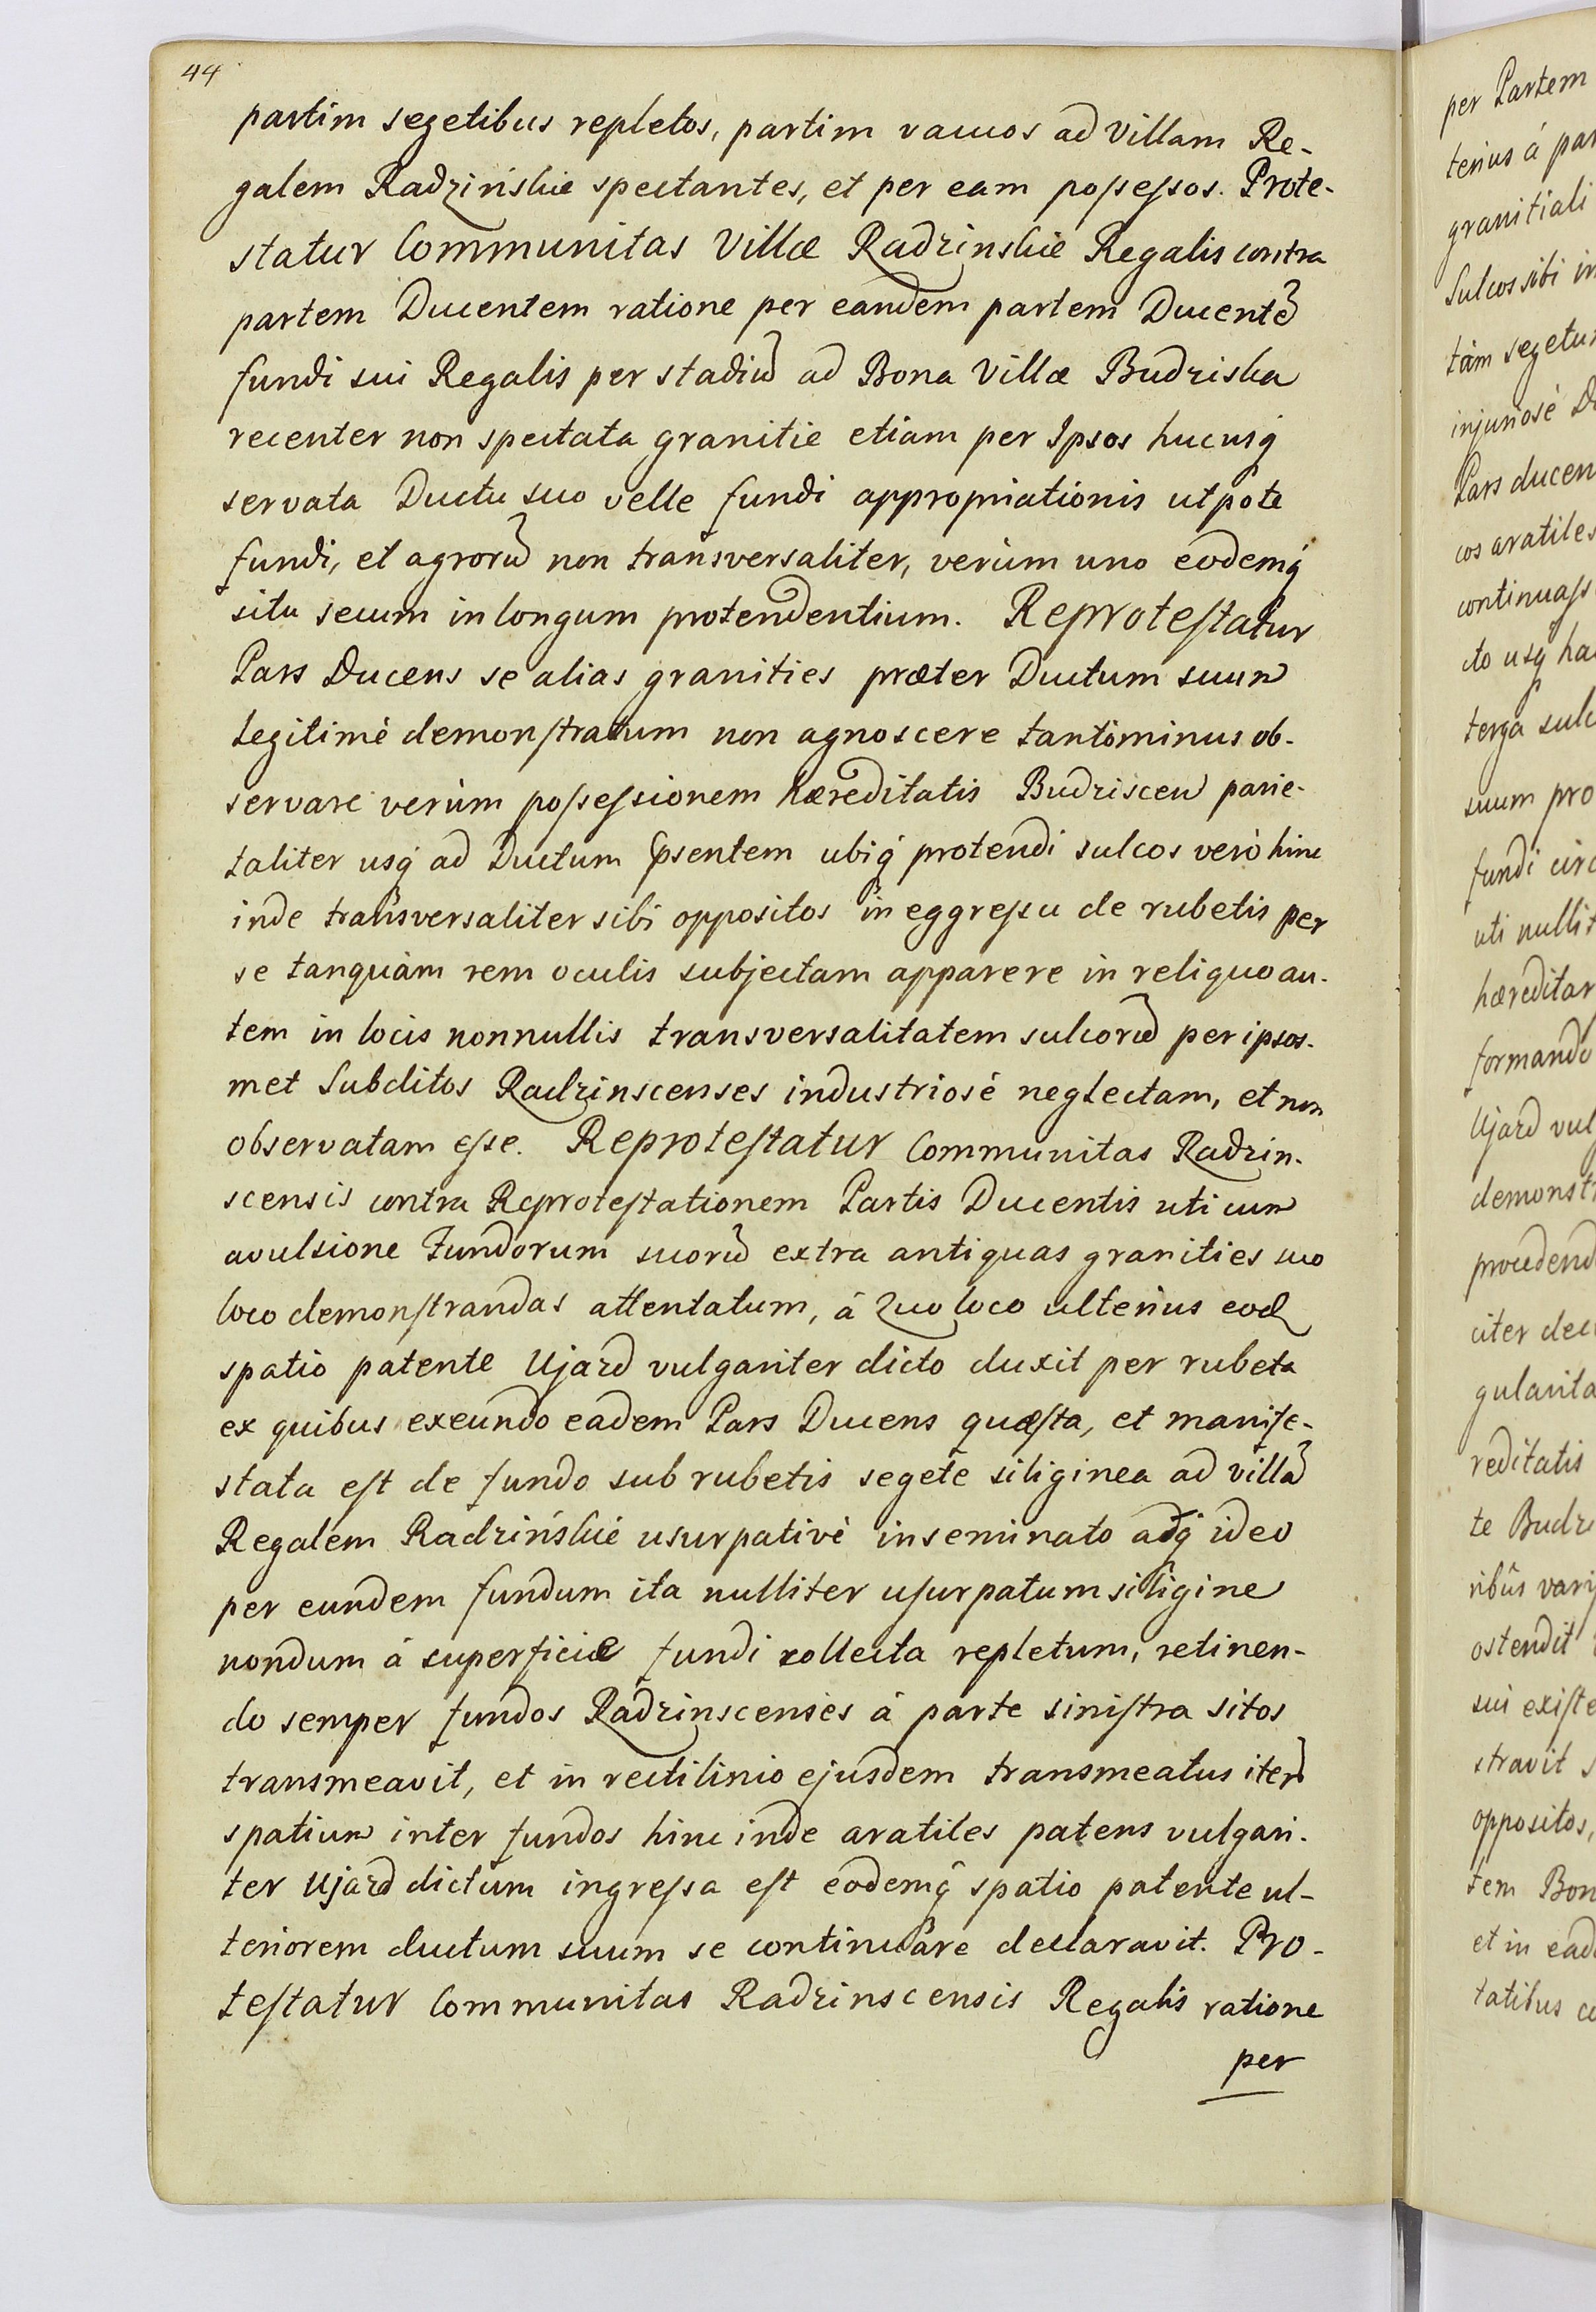 44
partim segetibus repletos, partim vacuos ad villam Re-
galem Radzińskie spectantes, et per eam possessos. Prote-
statur Communitas Villæ Radzinskie Regalis contra
partem Ducentem ratione per eandem partem Ducentē
fundi sui Regalis per stadiū ad Bona Villæ Budziska
recenter non spectata granitie etiam per Ipsos hucusq́
servata Ductu suo velle fundi appropriationis utpote
fundi, et agrorū non transversaliter, verùm uno eodemq́
situ secum in longum protendentium. Reprotestatur
Pars Ducens se alias granities præter Ductum suum
legitimè demonstratum non agnoscere tantòminus ob-
servare verùm possessionem hæreditatis Budziscen parie-
taliter usq́ ad Ductum psentem ubiq́ protendi sulcos verò hinc
inde transversaliter sibi oppositos in eggressu de rubetis per
se tanquàm rem oculis subjectam apparere in reliquo au-
tem in locis nonnullis transversalitatem sulcorū per ipsos-
met Subditos Radzinscenses industriosè neglectam, et non
observatam esse. Reprotestatur Communitas Radzin-
scensis contra Reprotestationem Partis Ducentis uti cum
avulsione Fundorum suorū extra antiquas granities suo
loco demonstrandas attentatum, à Quo loco ulterius eod
spatio patente Ujazd vulgariter dicto duxit per rubeta
ex quibus exeundo eadem Pars Ducens quæsta, et manife-
stata est de fundo sub rubetis segete siliginea ad villā
Regalem Radzińskie usurpativè inseminato adq́ ideo
per eundem fundum ita nulliter usurpatum siligine
nondum à superficie fundi collecta repletum, retinen-
do semper fundos Radzinscenses à parte sinistra sitos
transmeavit, et in rectilinio ejusdem transmeatus iterū
spatium inter fundos hinc inde aratiles patens vulgari-
ter Ujazd dictum ingressa est eodemq́ spatio patente ul-
teriorem ductum suum se continuare declaravit. Pro-
testatur Communitas Radzinscensis Regalis ratione
per
per Partem
terius à par
granitiali
Sulcos sibi in
tàm segetu
injuriosè D
Pars ducen
cos aratiles
continuass
cto usq́ ha
terga sulc
suum pro
fundi circ
uti nullit
hæreditar
formando
Ujazd vul
demonst
procedend
citer dec
gularita
reditatis
te Budzi
ribus vari
ostendit
sui existe
stravit s
oppositos,
tem Bon
et in ead
tatibus co